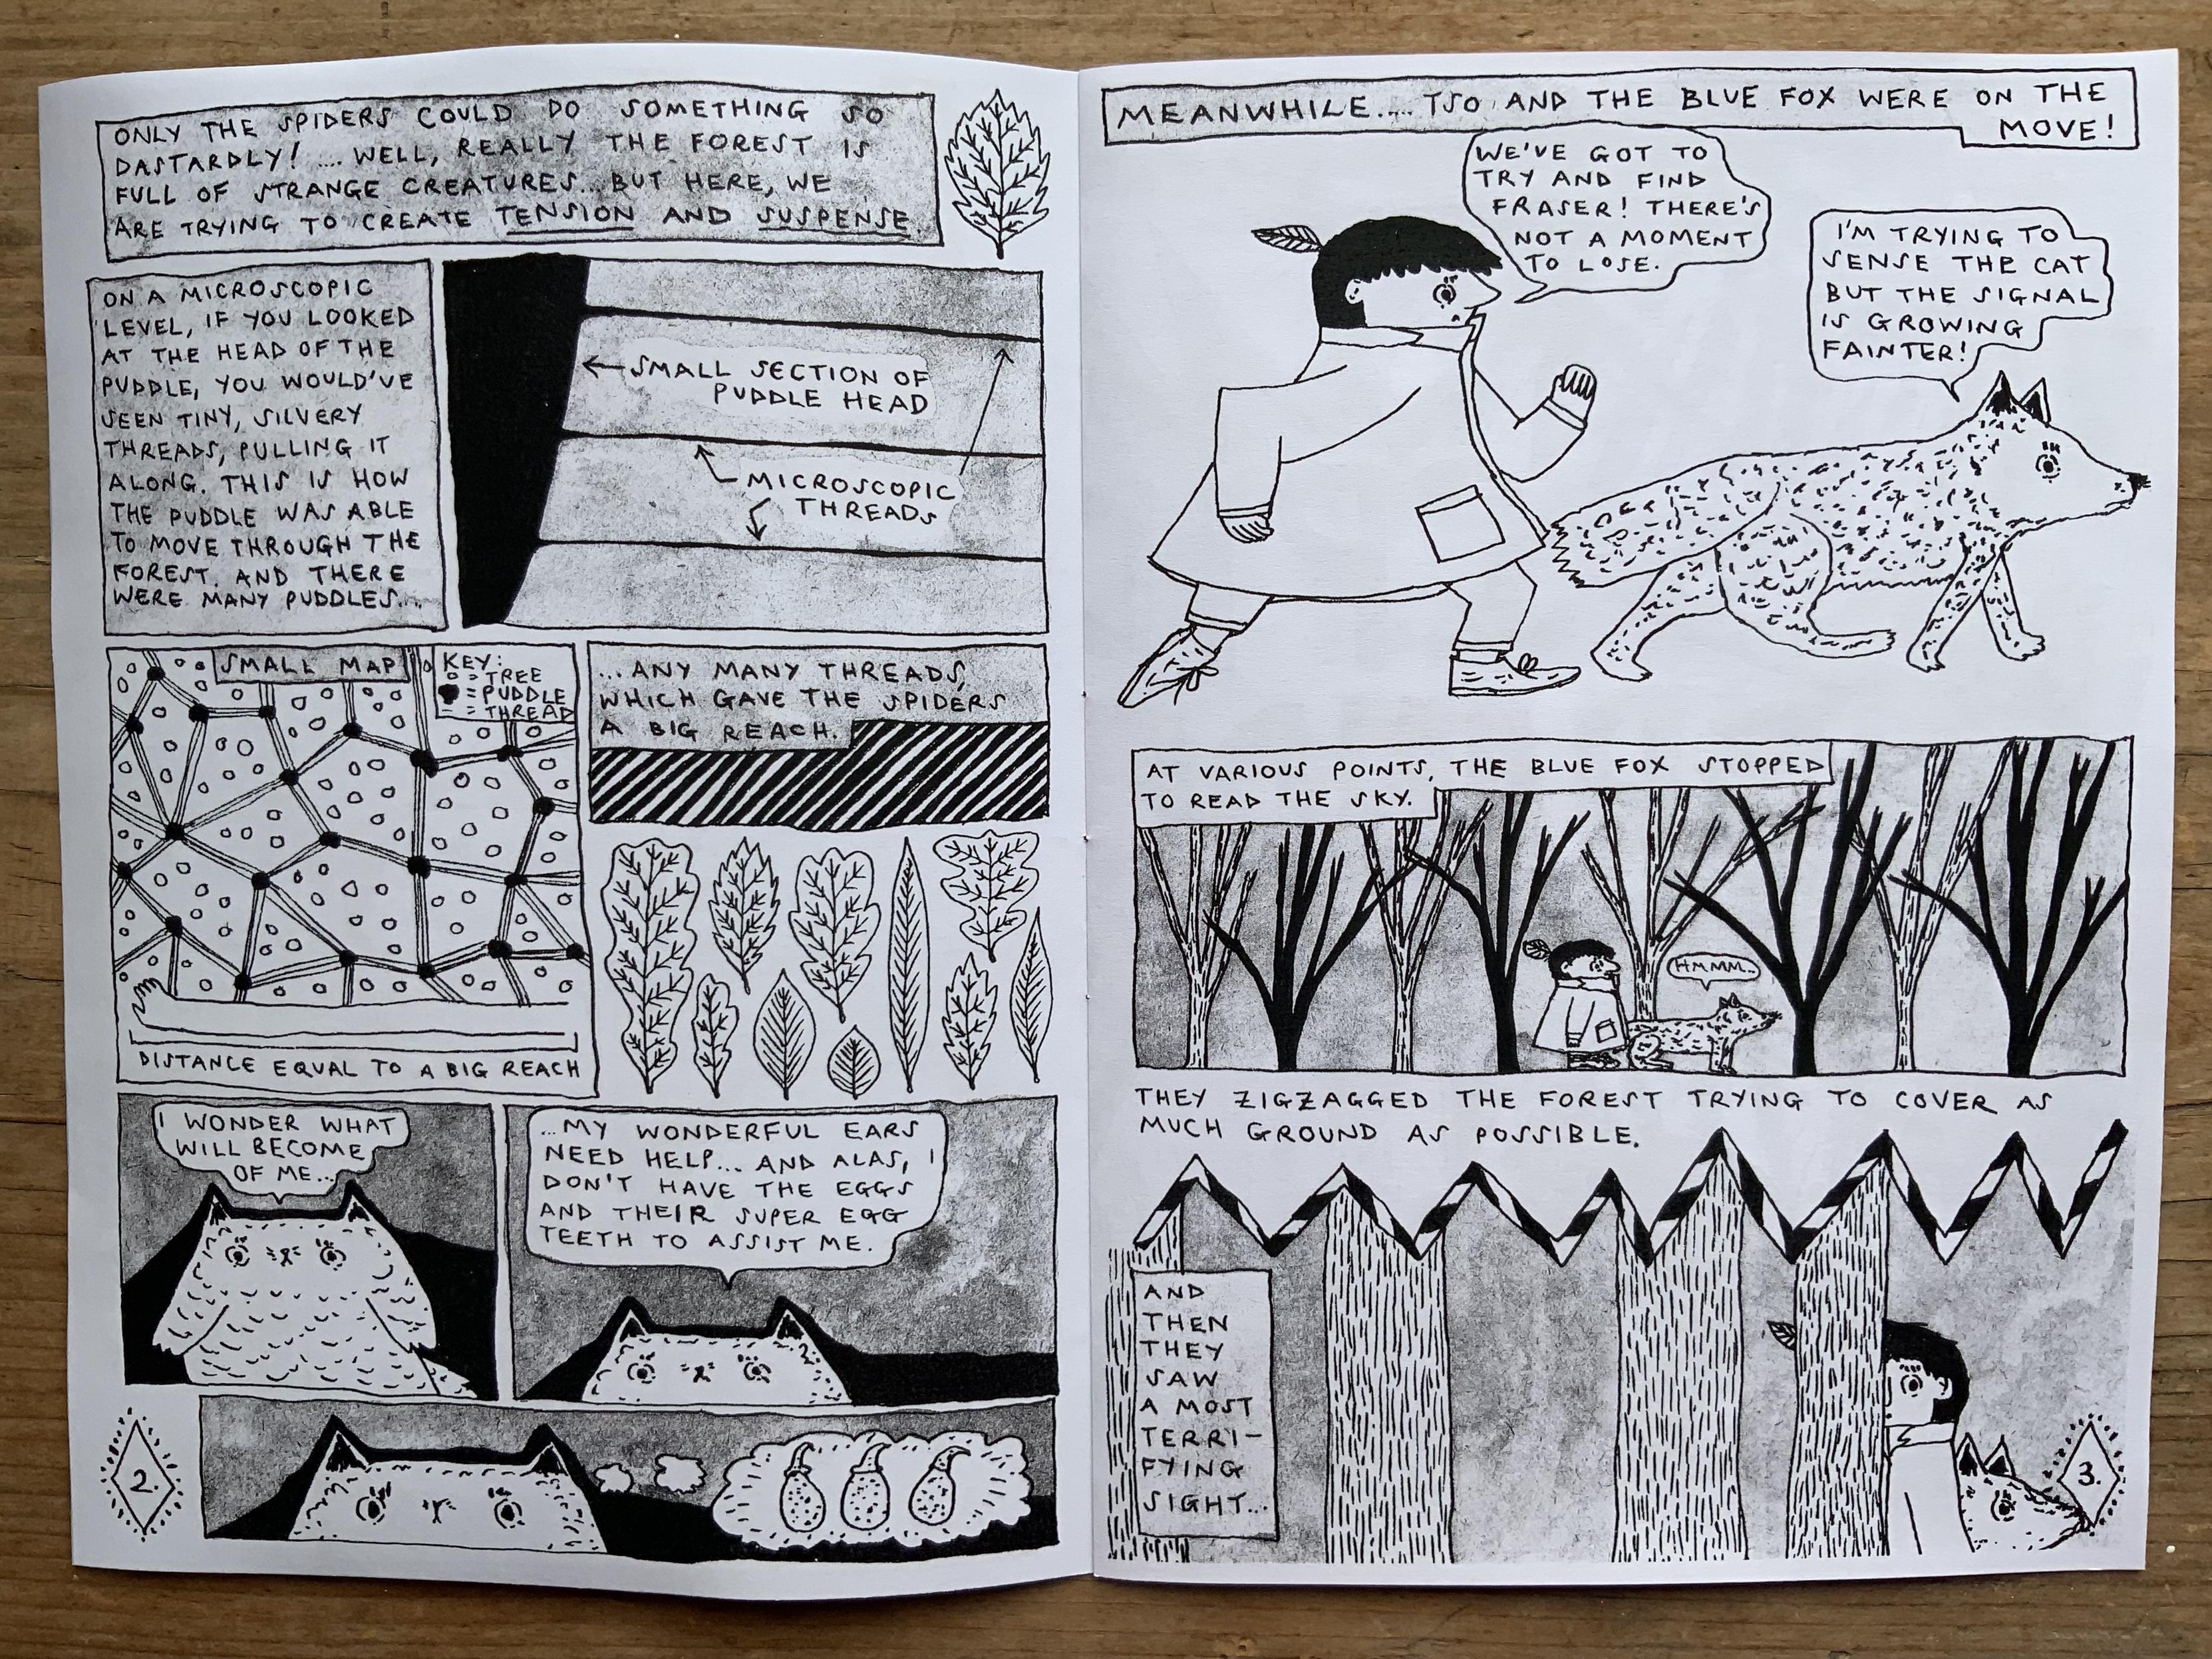 ONLY THE SPIDERS COULD DO SOMETHING SO
DASTARDLY! .... WELL, REALLY THE FOREST IS
FULL OF STRANGE CREATURES... BUT HERE, WE
ARE TRYING TO CREATE TENSION AND SUSPENSE.
ON A MICROSCOPIC
LEVEL, IF YOU LOOKED
AT THE HEAD OF THE
PUDDLE, YOU WOULD'VE
SEEN TINY, SILVERY
THREADS, PULLING IT
ALONG. THIS IS HOW
THE PUDDLE WAS ABLE
TO MOVE THROUGH THE
FOREST. AND THERE
WERE MANY PUDDLES...
SMALL SECTION OF
PUDDLE HEAD
MICROSCOPIC
THREADS
SMALL MAP
KEY:
= TREE
= PUDDLE
= THREAD
DISTANCE EQUAL TO A BIG REACH
...ANY MANY THREADS,
WHICH GAVE THE SPIDERS
A BIG REACH.
I WONDER WHAT
WILL BECOME
OF ME...
...MY WONDERFUL EARS
NEED HELP... AND ALAS, I
DON'T HAVE THE EGGS
AND THEIR SUPER EGG
TEETH TO ASSIST ME.
2.
MEANWHILE.... TSO AND THE BLUE FOX WERE ON THE
MOVE!
WE'VE GOT TO
TRY AND FIND
FRASER! THERE'S
NOT A MOMENT
TO LOSE.
I'M TRYING TO
SENSE THE CAT
BUT THE SIGNAL
IS GROWING
FAINTER!
AT VARIOUS POINTS, THE BLUE FOX STOPPED
TO READ THE SKY.
HMMM..
THEY ZIGZAGGED THE FOREST TRYING TO COVER AS
MUCH GROUND AS POSSIBLE.
AND
THEN
THEY
SAW
A MOST
TERRI-
FYING
SIGHT...
3.